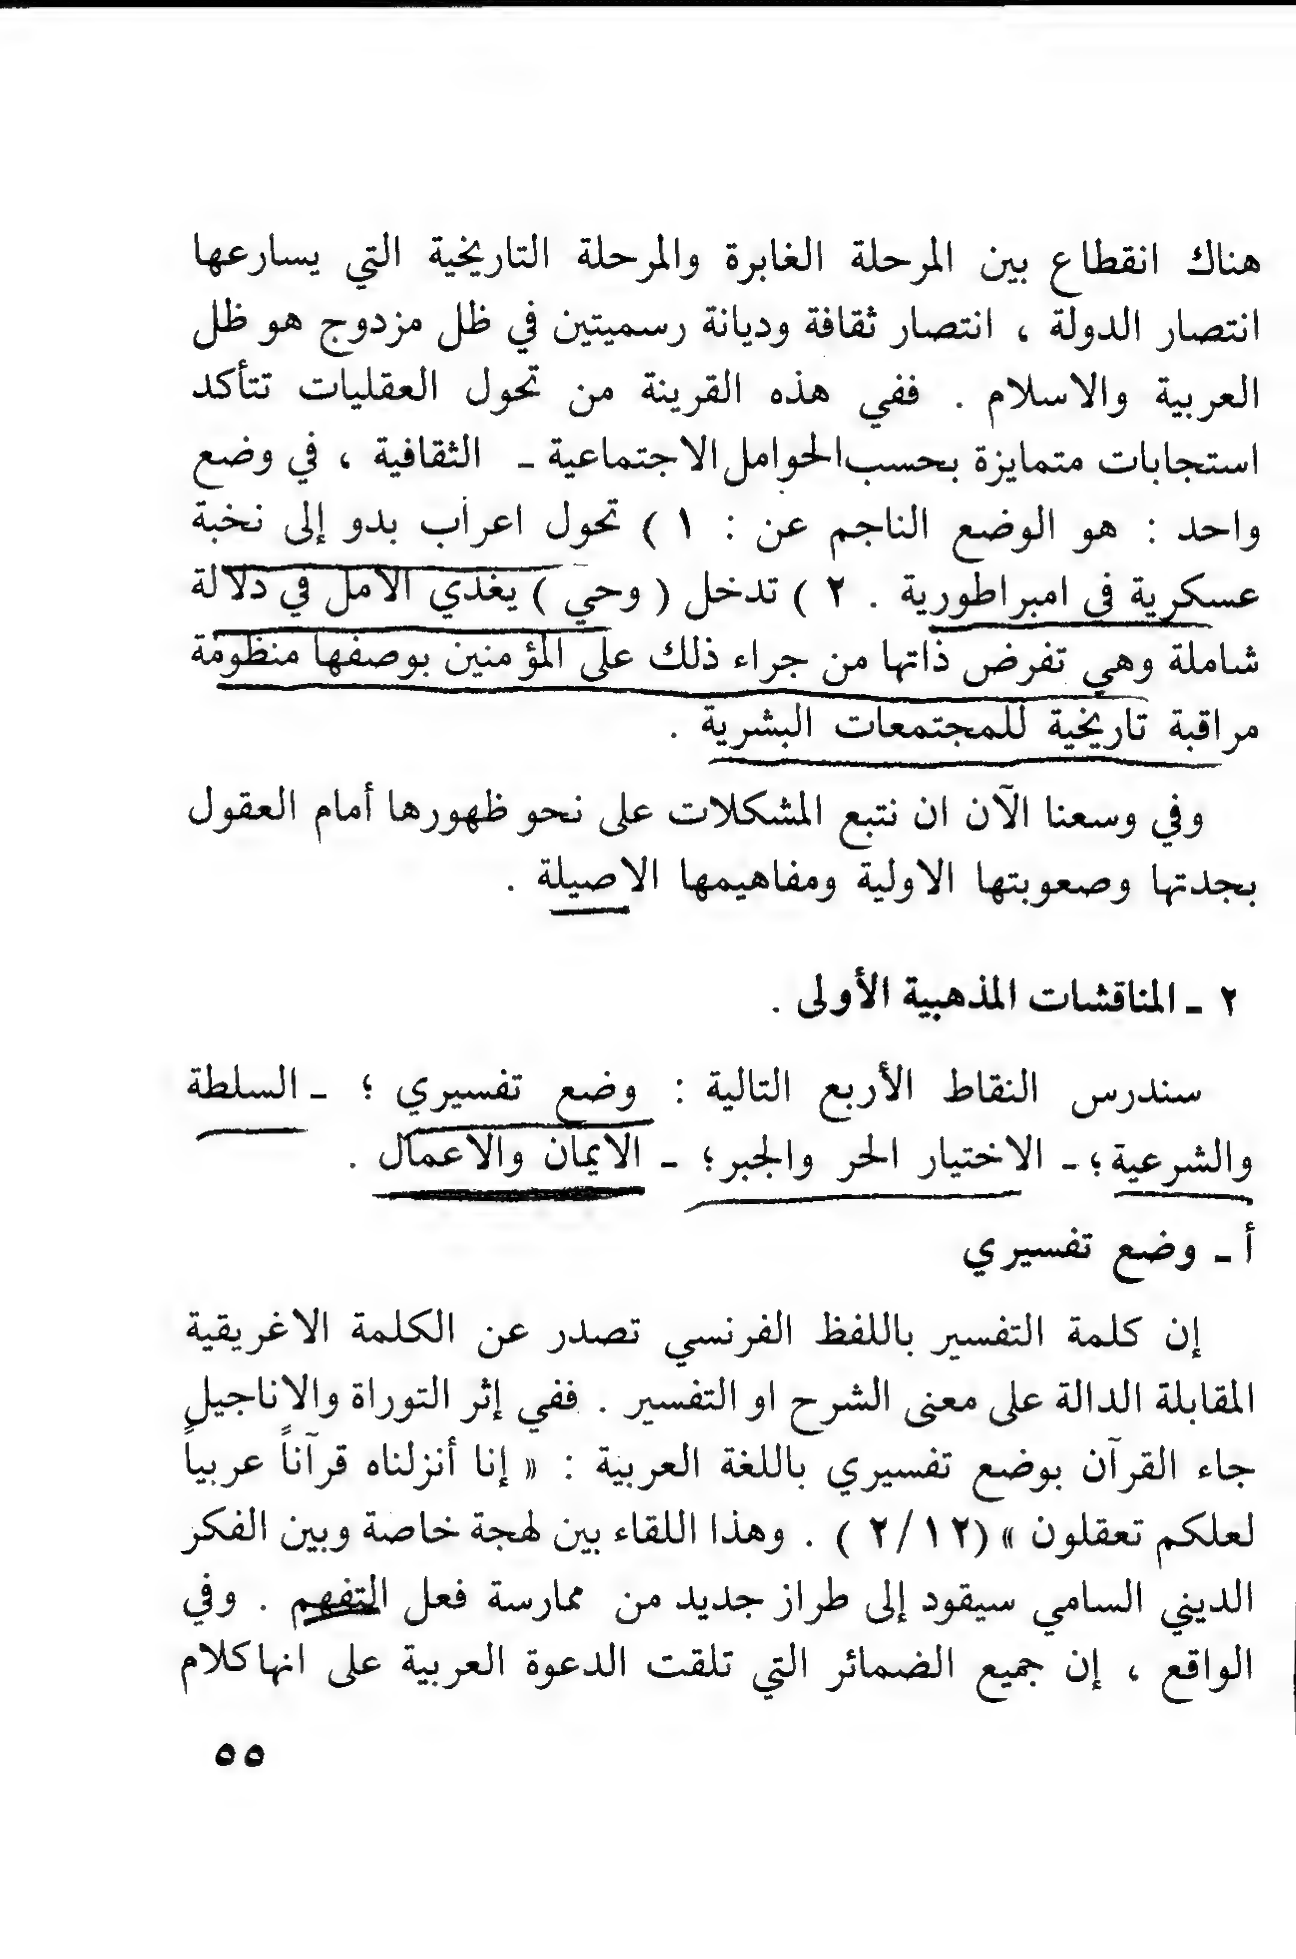 هناك انقطاع بين المرحلة الغابرة والمرحلة التاريخية التي يسارعها
انتصار الدولة ، انتصار ثقافة وديانة رسميتين في ظل مزدوج هو ظل
العربية والاسلام . ففي هذه القرينة من تحول العقليات تتأكد
استجابات متمايزة بحسب الحوامل الاجتماعية ـ الثقافية ، في وضع
واحد : هو الوضع الناجم عن : ١ ) تحول اعراب بدو إلى نخبة
عسكرية في امبراطورية . ٢ ) تدخل ( وحي ) يغذي الامل في دلالة
شاملة وهي تفرض ذاتها من جراء ذلك على المؤمنين بوصفها منظومة
مراقبة تاريخية للمجتمعات البشرية .
وفي وسعنا الآن ان نتبع المشكلات على نحو ظهورها أمام العقول
بجدتها وصعوبتها الاولية ومفاهيمها الاصيلة .
٢ ـ المناقشات المذهبية الأولى .
سندرس النقاط الأربع التالية : وضع تفسيري ؛ ـ السلطة
والشرعية ؛ ـ الاختيار الحر والجبر ؛ ـ الايمان والاعمال .
أ ـ وضع تفسيري
إن كلمة التفسير باللفظ الفرنسي تصدر عن الكلمة الاغريقية
المقابلة الدالة على معنى الشرح او التفسير . ففي إثر التوراة والاناجيل
جاء القرآن بوضع تفسيري باللغة العربية : « إنا أنزلناه قرآناً عربياً
لعلكم تعقلون » (١٢/ ٢ ) . وهذا اللقاء بين لهجة خاصة وبين الفكر
الديني السامي سيقود إلى طراز جديد من ممارسة فعل التفهم . وفي
الواقع ، إن جميع الضمائر التي تلقت الدعوة العربية على انها كلام
٥٥